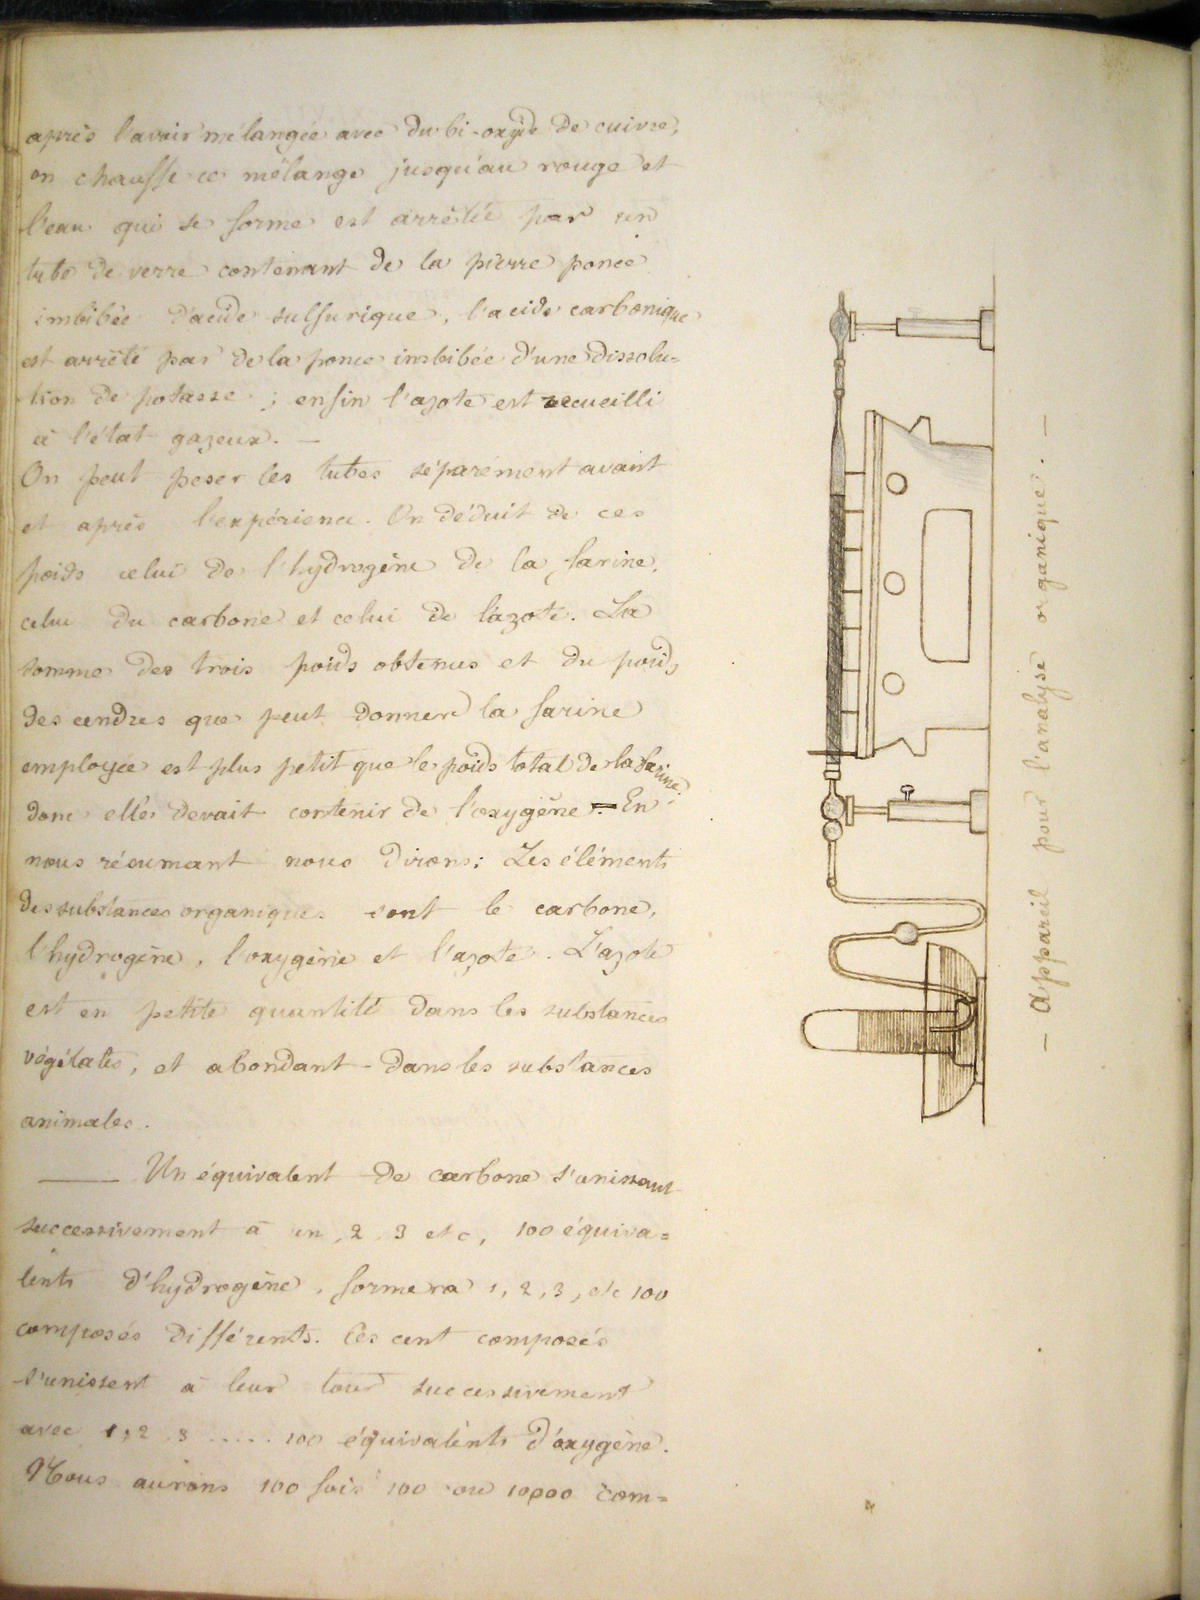 après l'avoir mélangée avec du bi-oxyde de cuivre,
on chauffe ce mélange jusqu'au rouge et
l'eau qui se forme est arrêtée par un
tube de verre contenant de la pierre ponce
imbibée d'acide sulfurique, l'acide carbonique
est arrêté par de la ponce imbibée d'une dissolu=
tion de potasse ; enfin l'azote est recueilli
à l'état gazeux. —
On peut peser les tubes séparément avant
et après l'expérience. On déduit de ces
poids celui de l'hydrogène de la farine,
celui du carbone et celui de l'azote. La
somme des trois poids obtenus et du poids
des cendres que peut donner la farine
employée est plus petit que le poids total de la farine;
donc elle devait contenir de l'oxygène. — En
nous résumant nous dirons: Les éléments
des substances organiques sont le carbone,
l'hydrogène, l'oxygène et l'azote. L'azote
est en petite quantité dans les substances
végétales, et abondant dans les substances
animales.
—— Un équivalent de carbone s'unissant
successivement à un, 2, 3 etc, 100 équiva=
lents d'hydrogène, formera 1, 2, 3, etc 100
composés différents. Ces cent composés
s'unissent à leur tour successivement
avec 1, 2, 3 ..... 100 équivalents d'oxygène.
Nous aurons 100 fois 100 ou 10000 com=
— Appareil pour l'analyse organique. —